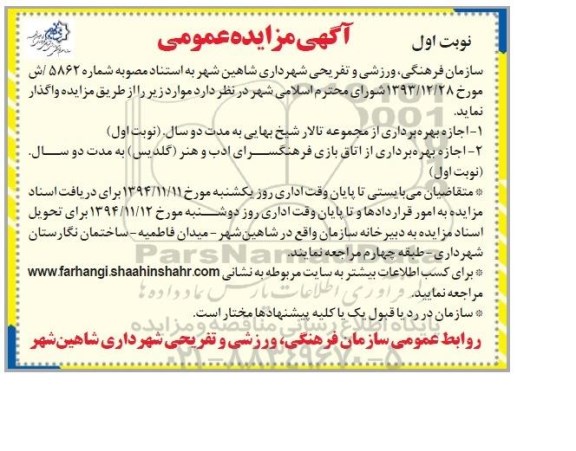 آگهی مزایده عمومی
نوبت اول
سازمان فرهنگی، ورزشی و تفریحی شهرداری شاهین شهر به استناد مصوبه شماره ۵۸۶۲/ش
مورخ ۱۳۹۳/۱۲/۲۸ شورای محترم اسلامی شهر در نظر دارد موارد زیر را از طریق مزایده واگذار
نماید.
۱-اجازه بهره‌برداری از مجموعه تالار شیخ بهایی به مدت دو سال. (نوبت اول)
۲- اجازه بهره‌برداری از اتاق بازی فرهنگسرای ادب و هنر (گلدیس) به مدت دو سال.
(نوبت اول)
* متقاضیان می‌بایستی تا پایان وقت اداری روز یکشنبه مورخ ۱۳۹۴/۱۱/۱۱ برای دریافت اسناد
مزایده به امور قراردادها و تا پایان وقت اداری روز دوشنبه مورخ ۱۳۹۴/۱۱/۱۲ برای تحویل
اسناد مزایده به دبیرخانه سازمان واقع در شاهین‌شهر - میدان فاطمیه - ساختمان نگارستان
شهرداری - طبقه چهارم مراجعه نمایند.
* برای کسب اطلاعات بیشتر به سایت مربوطه به نشانی www.farhangi.shaahinshahr.com
مراجعه نمایید.
* سازمان در رد یا قبول یک یا کلیه پیشنهادها مختار است.
روابط عمومی سازمان فرهنگی، ورزشی و تفریحی شهرداری شاهین‌شهر
ParsNamadData
پایگاه اطلاع رسانی مناقصه و مزایده
۰۲۱-۸۸۳۴۹۶۷۰-۵